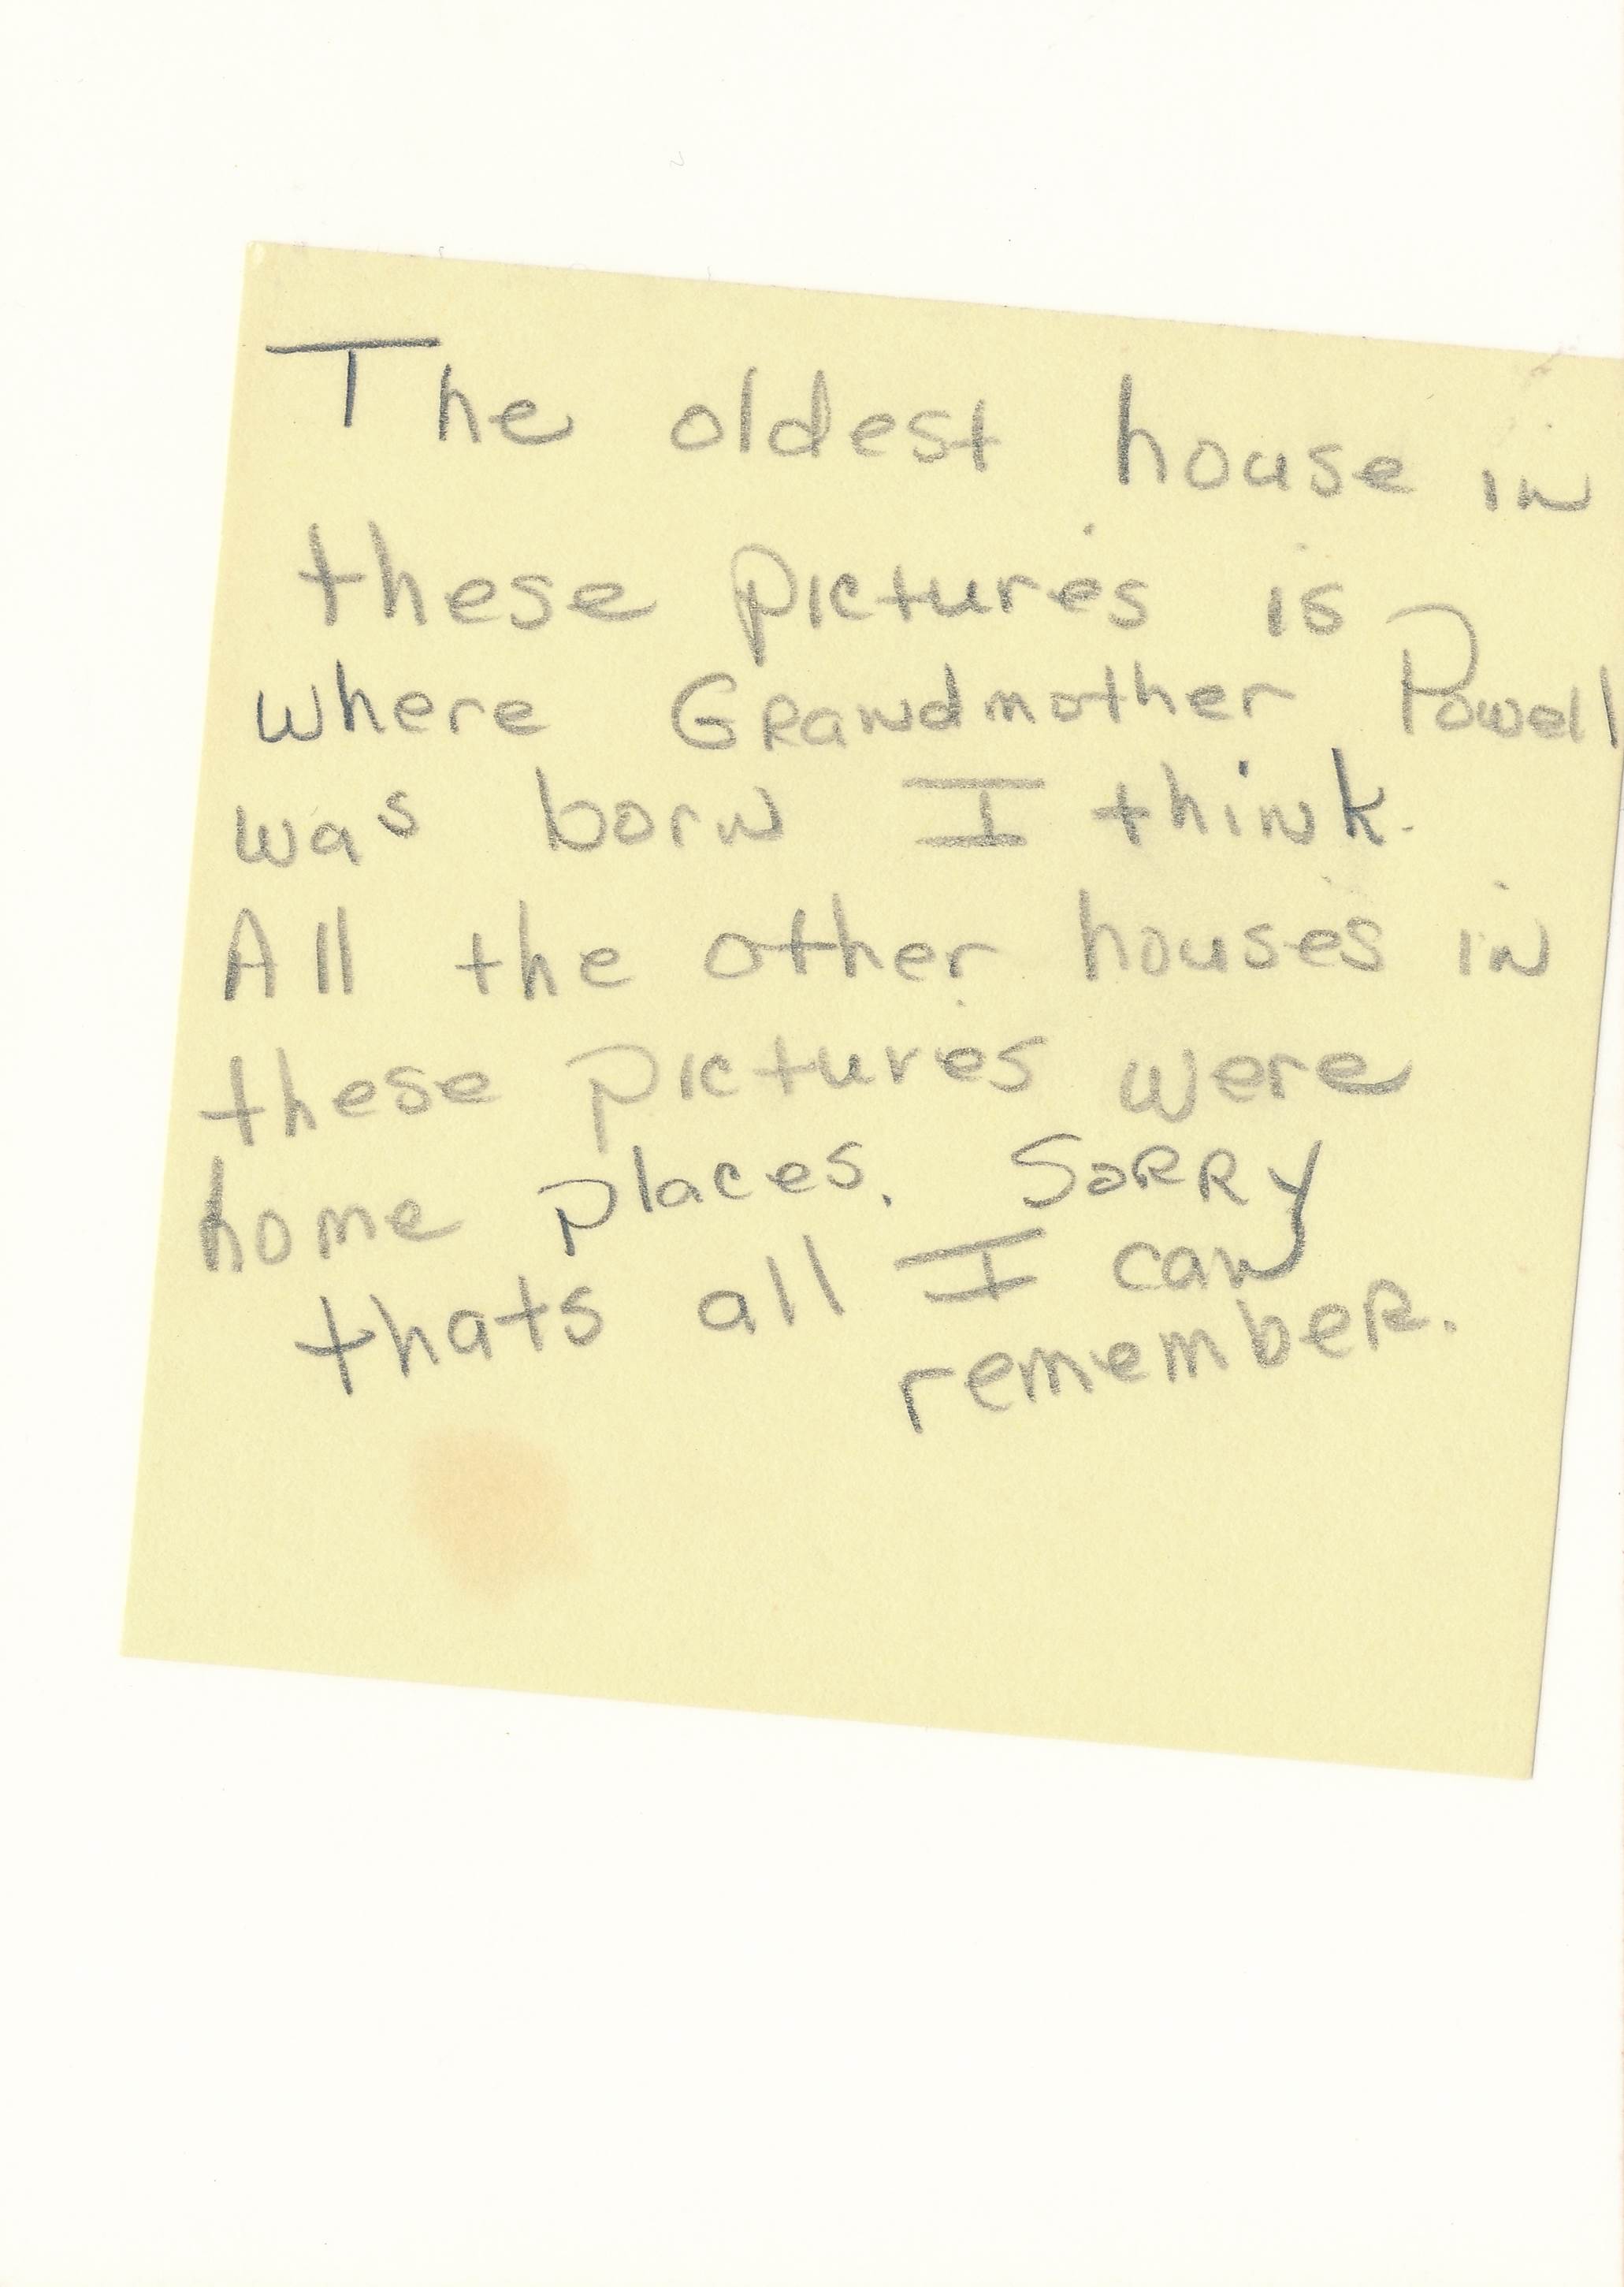 The oldest house in
these pictures is
where Grandmother Powell
was born I think.
All the other houses in
these pictures were
home places. Sorry
thats all I can
remember.